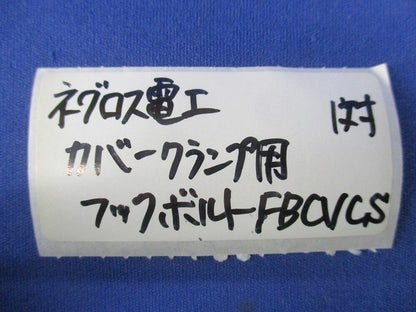 ネグロス電工 1対
カバークランプ用
フックボルトFBCVCS